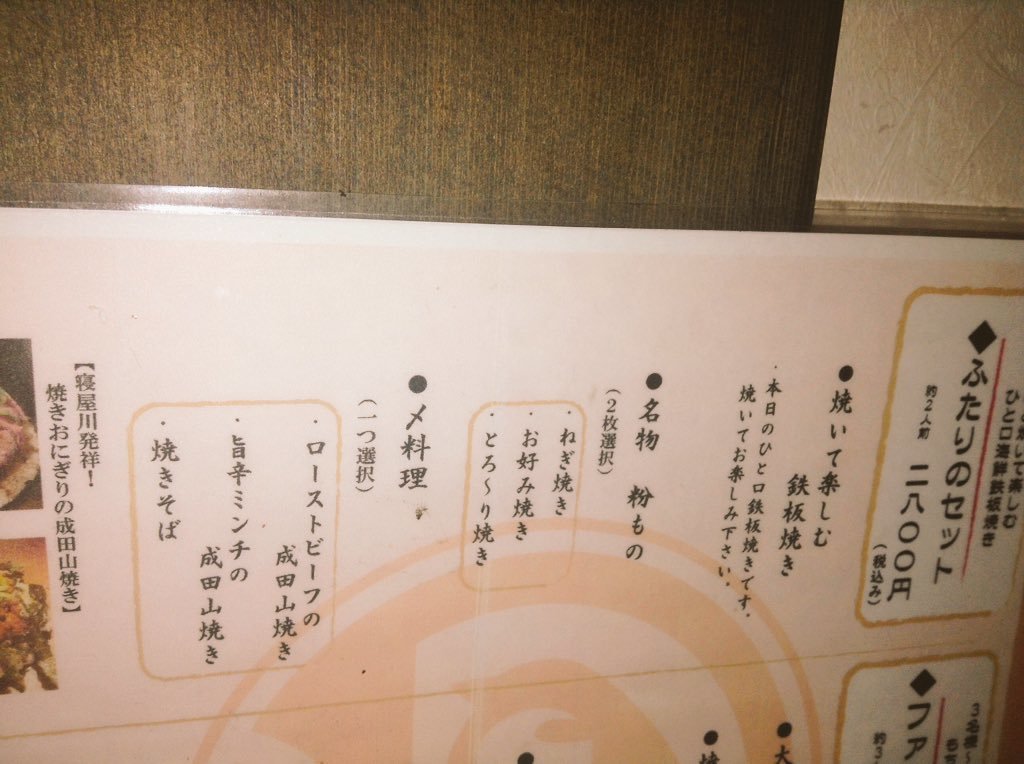 焼いて楽しむ
ひと口海鮮鉄板焼き
◆ふたりのセット
約2人前 二八〇〇円
(税込み)
●焼いて楽しむ
鉄板焼き
・本日のひと口鉄板焼きです。
焼いてお楽しみ下さい。
●名物 粉もの
(2枚選択)
・ねぎ焼き
・お好み焼き
・とろ〜り焼き
●〆料理
(一つ選択)
・ローストビーフの
成田山焼き
・旨辛ミンチの
成田山焼き
・焼きそば
【寝屋川発祥!
焼きおにぎりの成田山焼き】
3名様〜
◆ファ
約3
●大
●焼